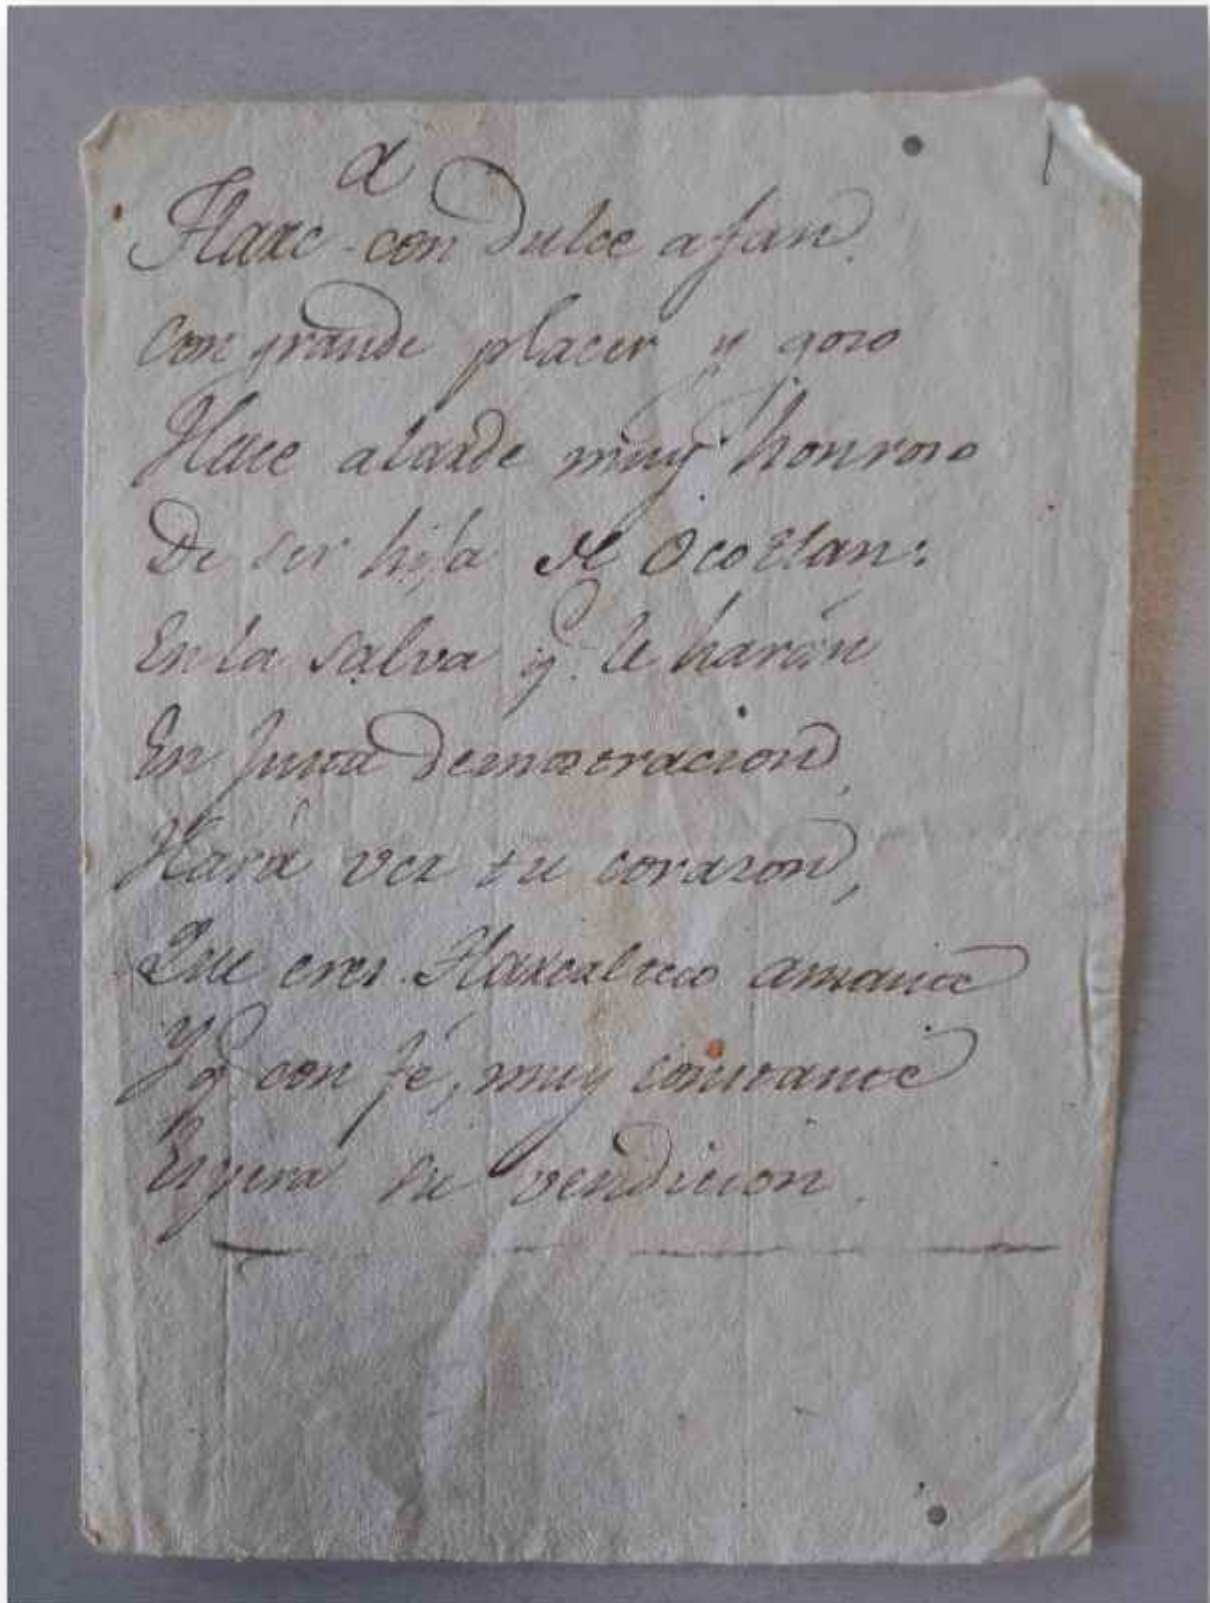 Tlaxc.ª con dulce afan
Con grande placer y goso
Hace alarde muy honroso
De ser hija de Ocotlan:
En la salva q.º le harán
En Justa demostracion,
Hará ver tu corazon,
Que eres Tlaxcalteco amante
Y q.º con fé, muy constante
Espera su vendicion.